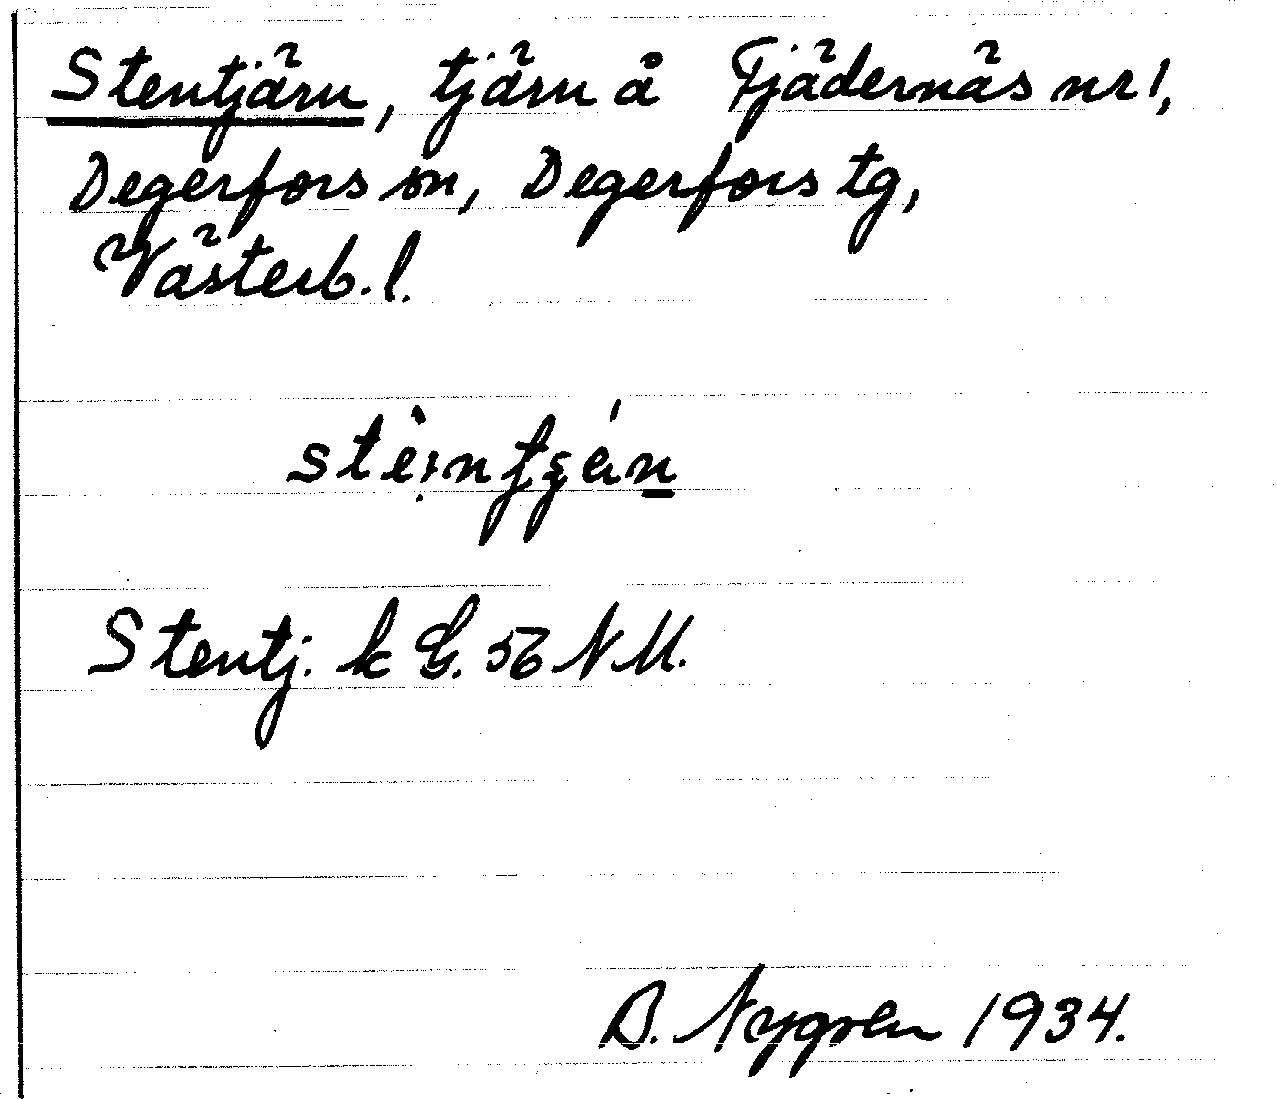 Stentjärn, tjärn å Tjädernäs nr 1,
Degerfors sn, Degerfors tg,
Västerb. l.
Stentj. k G. 56 N M.
B. Nygren 1934.